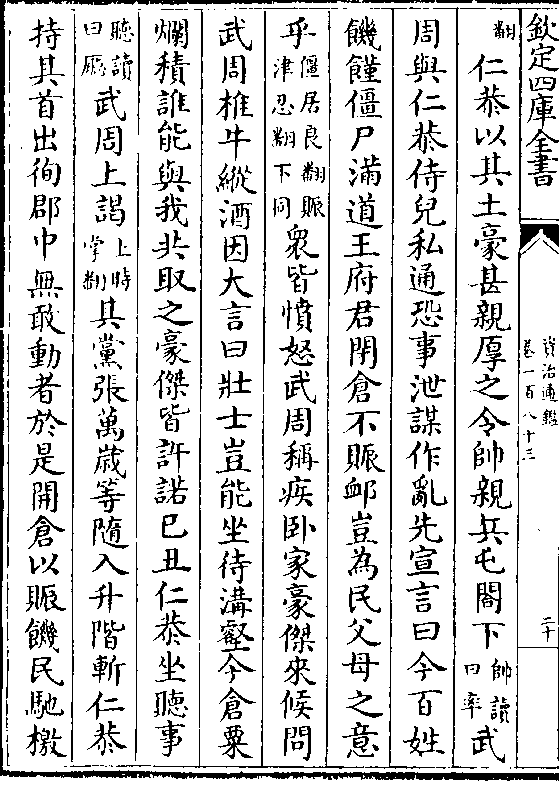 欽定四庫全書
資治通鑑
卷一百八十三
二十
翻仁恭以其土豪甚親厚之令帥親兵屯閤下帥讀曰率武
周與仁恭侍兒私通恐事泄謀作亂先宣言曰今百姓
饑饉僵尸滿道王府君閉倉不賑卹豈為民父母之意
乎僵居良翻賑津忍翻下同衆皆憤怒武周稱疾卧家豪傑來候問
武周椎牛縱酒因大言曰壯士豈能坐待溝壑今倉粟
爛積誰能與我共取之豪傑皆許諾已丑仁恭坐聽事
聽讀曰廳武周上謁上時掌翻其黨張萬歳等隨入升階斬仁恭
持其首出徇郡中無敢動者於是開倉以賑饑民馳檄